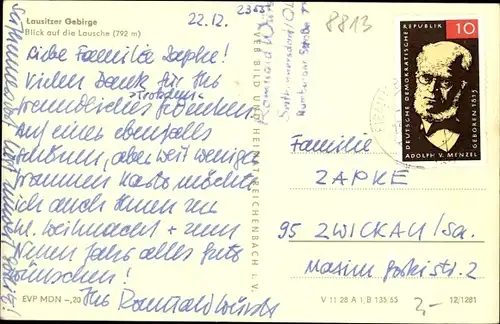 Lausitzer Gebirge
Blick auf die Lausche (792 m)
22.12.
Liebe Familie Zapke!
Vielen Dank für Ihr
freundliches Gedenken.
Auf einer ebenfalls
schönen, aber weit weniger
Karte möchte
ich auch Ihnen zu
Weihnachten + zum
Neuen Jahr alles Gute
wünschen!
Ihr
EVP MDN -,20
VEB BILD UND HEIMAT REICHENBACH i. V.
8813
DEUTSCHE DEMOKRATISCHE
REPUBLIK 10
GEBOREN 1815
ADOLPH V. MENZEL
Familie
ZAPKE
95 ZWICKAU/Sa.
Maxim Gorki str. 2
V 11 28 A 1, B 135/65
12/1281
2,-